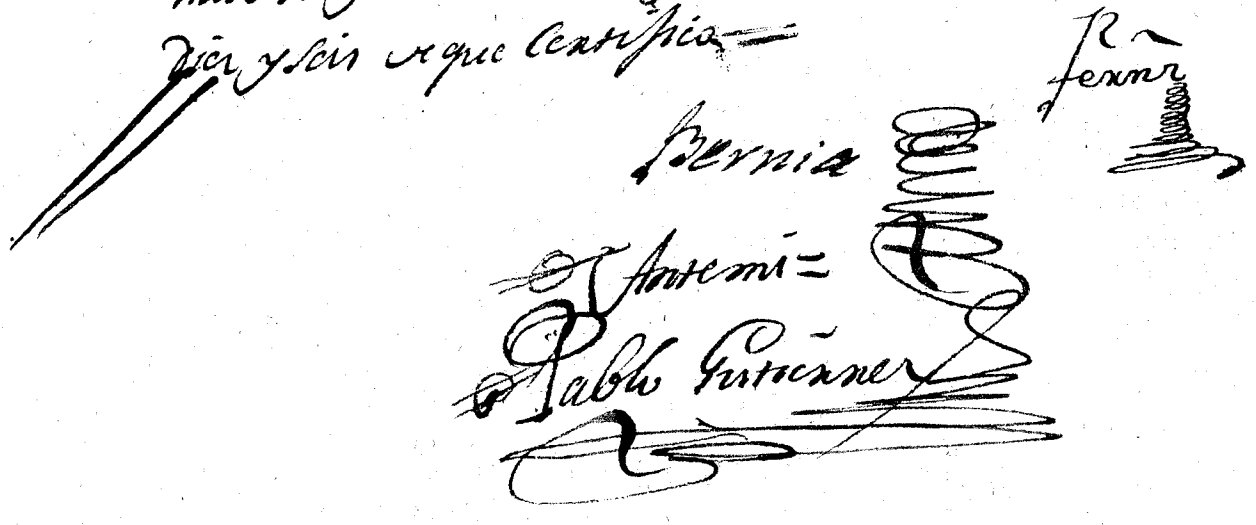 Diez y seis de que Certifico =
Bernia
Antemi =
Pablo Gutierrez